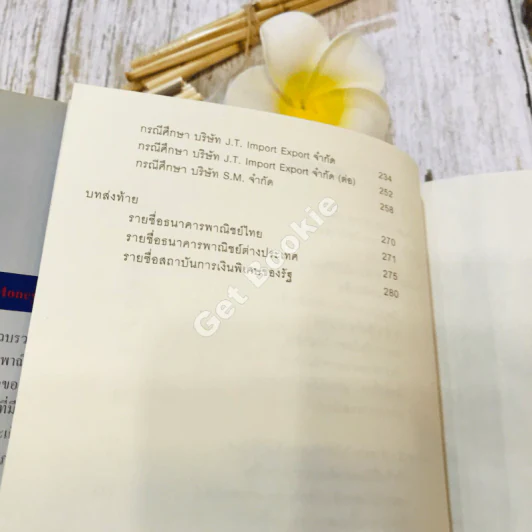 กรณีศึกษา บริษัท J.T. Import Export จำกัด 234
กรณีศึกษา บริษัท J.T. Import Export จำกัด (ต่อ) 252
กรณีศึกษา บริษัท S.M. จำกัด 258
บทส่งท้าย 270
รายชื่อธนาคารพาณิชย์ไทย 271
รายชื่อธนาคารพาณิชย์ต่างประเทศ 275
รายชื่อสถาบันการเงินพิเศษของรัฐ 280
Get Bookie